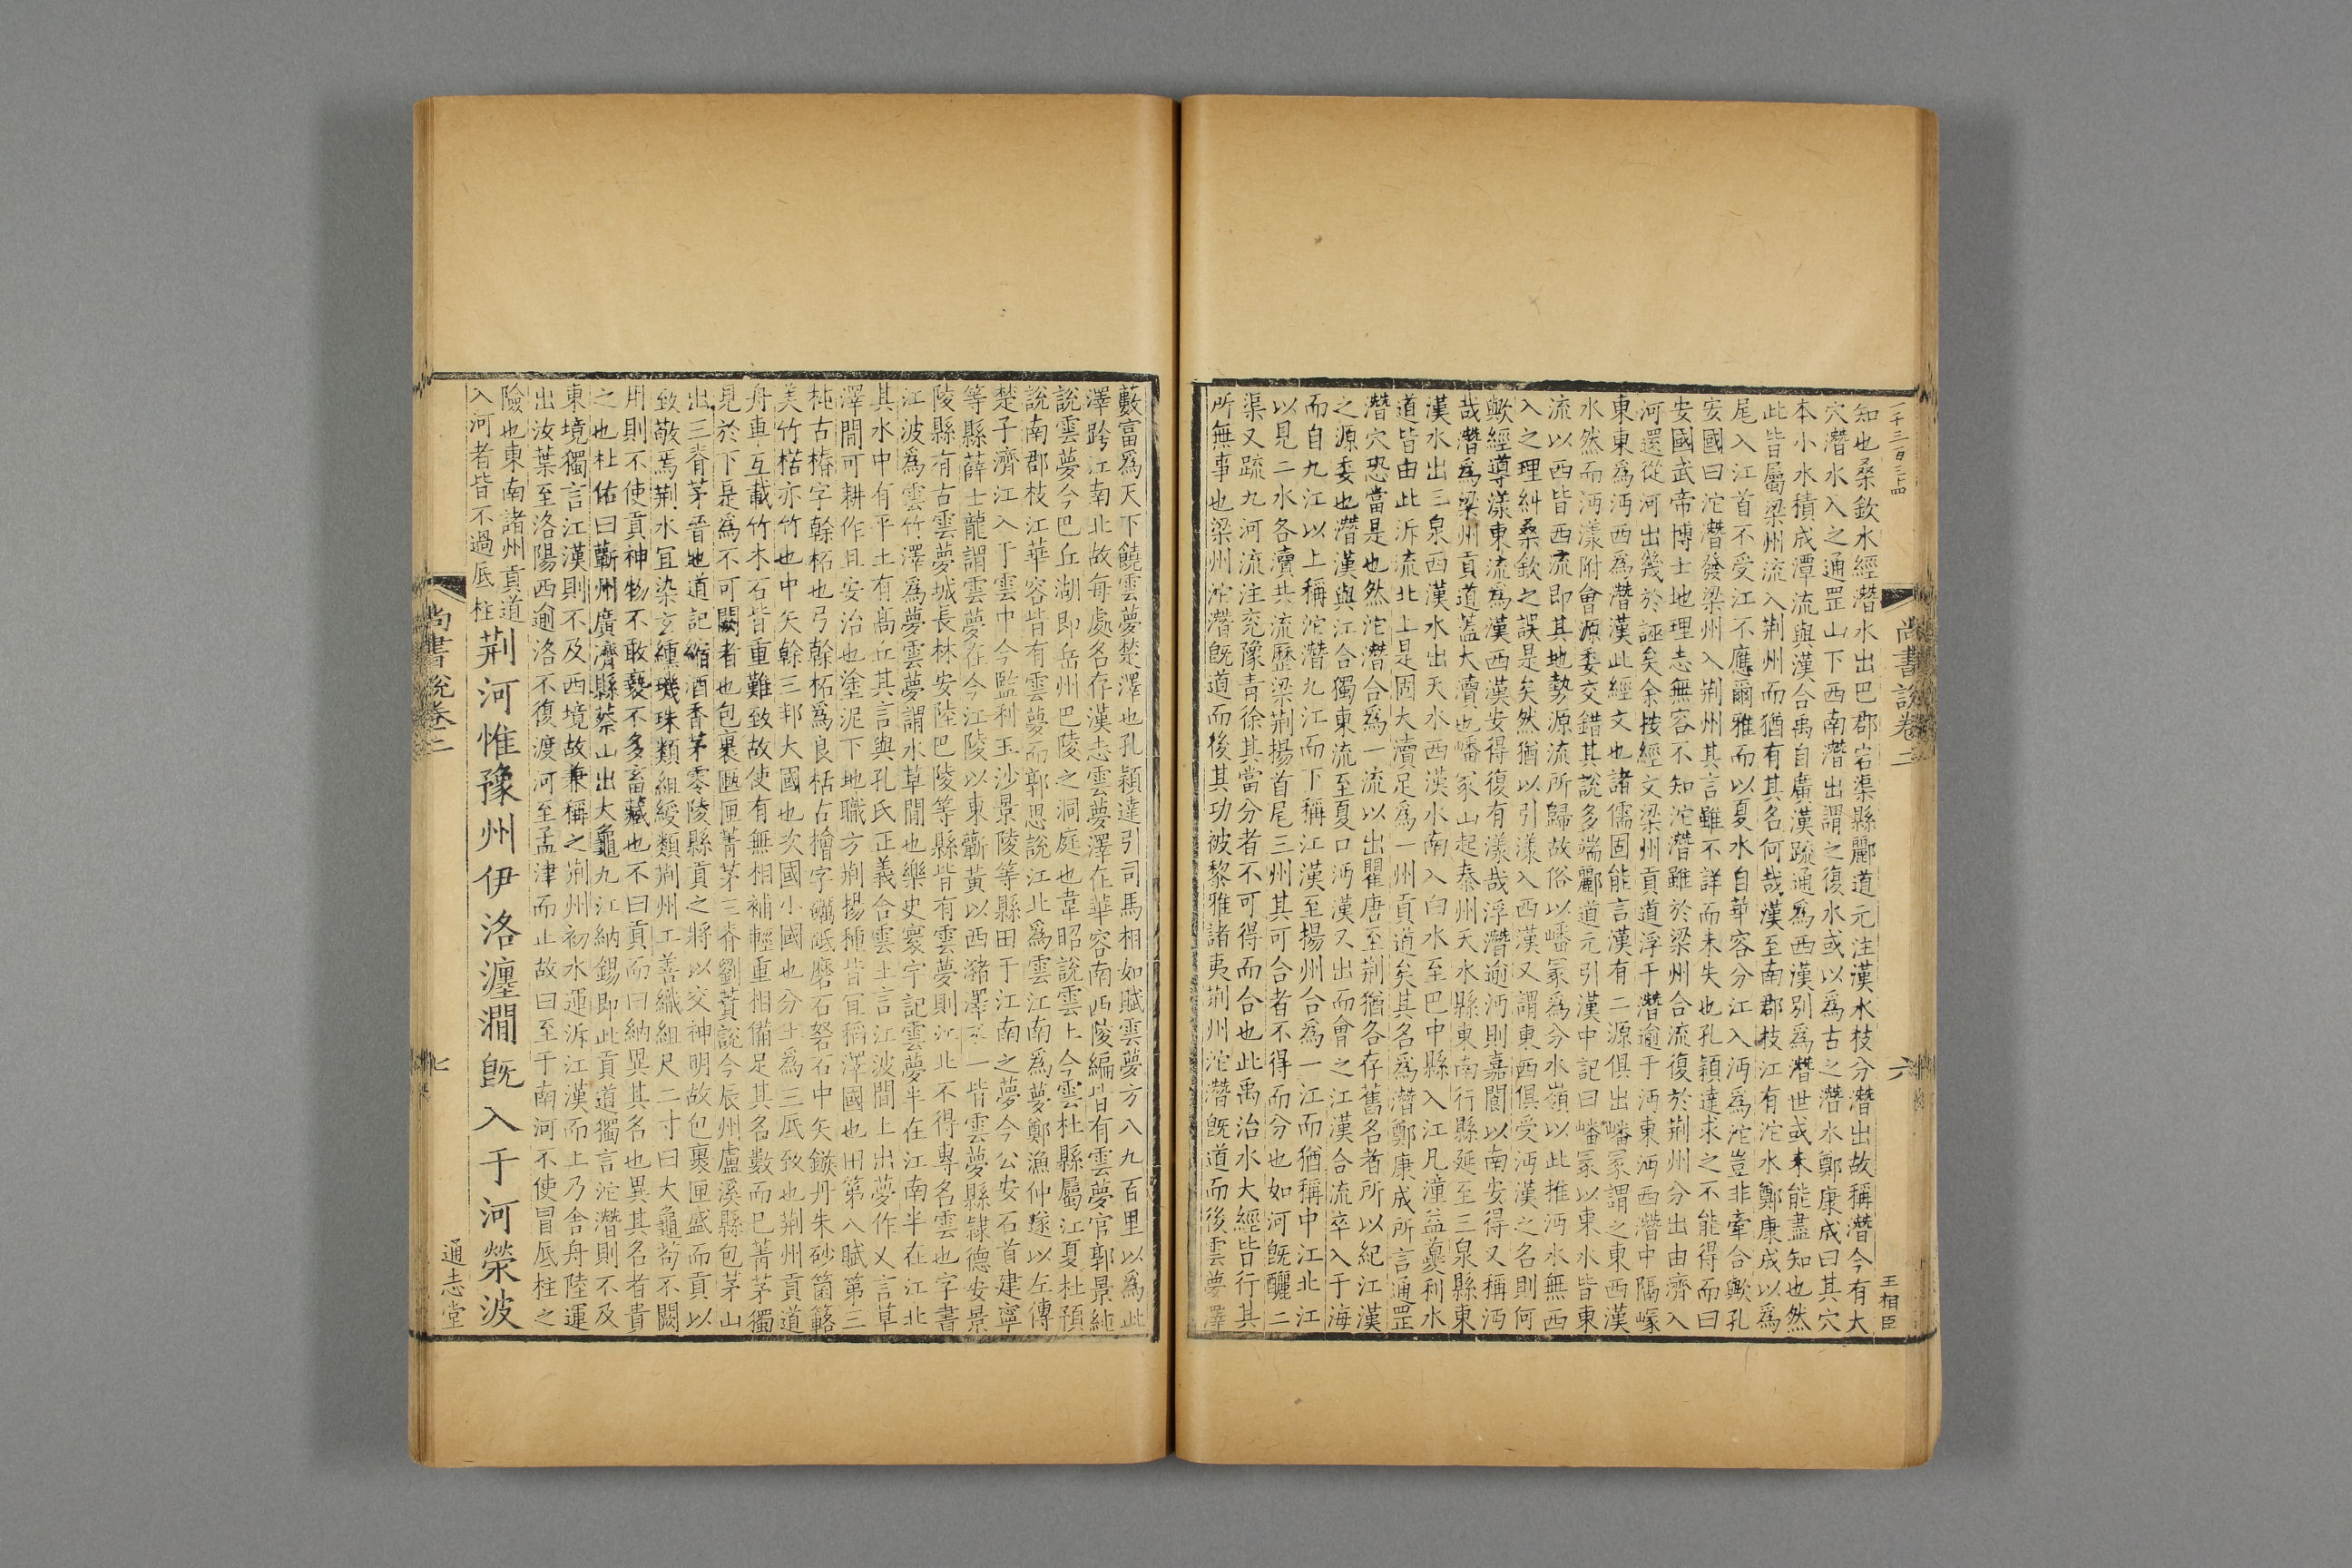 一千三百三十四
尚書説卷二
六
王相臣
知也桑欽水經潛水出巴郡宕渠縣酈道元注漢水枝分潛出故稱潛今有大
穴潛水入之通罡山下西南潛出謂之復水或以爲古之潛水鄭康成曰其穴
本小水積成潭流與漢合禹自廣漢疏通爲西漢别爲潛世或未能盡知也然
此皆屬梁州流入荆州而猶有其名何哉漢至南郡枝江有沱水鄭康成以爲
尾入江首不受江不應爾雅而以夏水自華容分江入沔爲沱豈非牽合歟孔
安國曰沱潛發梁州入荆州其言雖不詳而未失也孔穎達求之不能得而曰
安國武帝博士地理志無容不知沱潛雖於梁州合流復於荆州分出由濟入
河還從河出幾於誣矣余按經文梁州貢道浮于潛逾于沔東沔西潛中隔嵹
東東爲沔西爲潛漢此經文也諸儒固能言漢有二源俱出嶓冢謂之東西漢
水然而沔漾附會源委交錯其説多端酈道元引漢中記曰嶓冢以東水皆東
流以西皆西流即其地勢源流所歸故俗以嶓冢爲分水嶺以此推沔水無西
入之理糾桑欽之誤是矣然猶以引漾入西漢又謂東西俱受沔漢之名則何
歟經導漾東流爲漢西漢安得復有漾哉浮潛逾沔則嘉閬以南安得又稱沔
哉潛爲梁州貢道蓋大瀆也嶓冢山起秦州天水縣東南行縣延至三泉縣東
漢水出三泉西漢水出天水西漢水南入白水至巴中縣入江凡潼益夔利水
道皆由此泝流北上是固大瀆足爲一州貢道矣其名爲潛鄭康成所言通罡
潛穴恐當是也然沱潛合爲一流以出瞿唐至荆猶各存舊名者所以紀江漢
之源委也潛漢與江合獨東流至夏口沔漢又出而會之江漢合流萃入于海
而自九江以上稱沱潛九江而下稱江漢至揚州合爲一江而猶稱中江北江
以見二水各瀆共流歷梁荆揚首尾三州其可合者不得而分也如河旣釃二
渠又疏九河流注兖豫青徐其當分者不可得而合也此禹治水大經皆行其
所無事也梁州沱潛旣道而後其功被黎雅諸夷荆州沱潛旣道而後雲夢澤
藪富爲天下饒雲夢楚澤也孔穎達引司馬相如賦雲夢方八九百里以爲此
澤跨江南北故每處名存漢志雲夢澤在華容南西陵編皆有雲夢官郭景純
説雲夢今巴丘湖即岳州巴陵之洞庭也韋昭説雲土今雲杜縣屬江夏杜預
説南郡枝江華容皆有雲夢而郭思説江北爲雲江南爲夢鄭漁仲遂以左傳
楚子濟江入于雲中今監利玉沙景陵等縣田于江南之夢今公安石首建寧
等縣薛士龍謂雲夢在今江陵以東蘄黄以西瀦澤不一皆雲夢縣隸德安景
陵縣有古雲夢城長林安陸巴陵等縣皆有雲夢則江北不得專名雲也字書
江波爲雲竹澤爲夢雲夢謂水草間也樂史寰宇記雲夢半在江南半在江北
其水中有平土有髙丘其言與孔氏正義合雲土言江波間上出夢作乂言草
澤間可耕作且安治也塗泥下地職方荆揚種皆宜稻澤國也田第八賦第三
杶古椿字榦柘也弓榦柘爲良栝古檜字礪砥磨石砮石中矢鏃丹朱砂箘簵
美竹楛亦竹也中矢榦三邦大國也次國小國也分土爲三厎致也荆州貢道
舟車互載竹木石皆重難致故使有無相補輕重相備足其名數而已菁茅獨
見於下是爲不可闕者也包裹匭匣菁茅三脊劉蕡説今辰州盧溪縣包茅山
出三脊茅晉地道記縮酒香茅零陵縣貢之將以交神明故包裹匣盛而貢以
致敬焉荆水宜染玄纁璣珠類組綬類荆州工善織組尺二寸曰大龜苟不闕
用則不使貢神物不敢褻不多畜藏也不曰貢而曰納異其名也異其名者貴
之也杜佑曰蘄州廣濟縣蔡山出大龜九江納錫即此貢道獨言沱潛則不及
東境獨言江漢則不及西境故兼稱之荆州初水運泝江漢而上乃舍舟陸運
出汝葉至洛陽西逾洛不復渡河至孟津而止故曰至于南河不使冒厎柱之
險也東南諸州貢道
入河者皆不過厎柱
荆河惟豫州伊洛瀍澗旣入于河滎波
尚書説卷二
七
通志堂